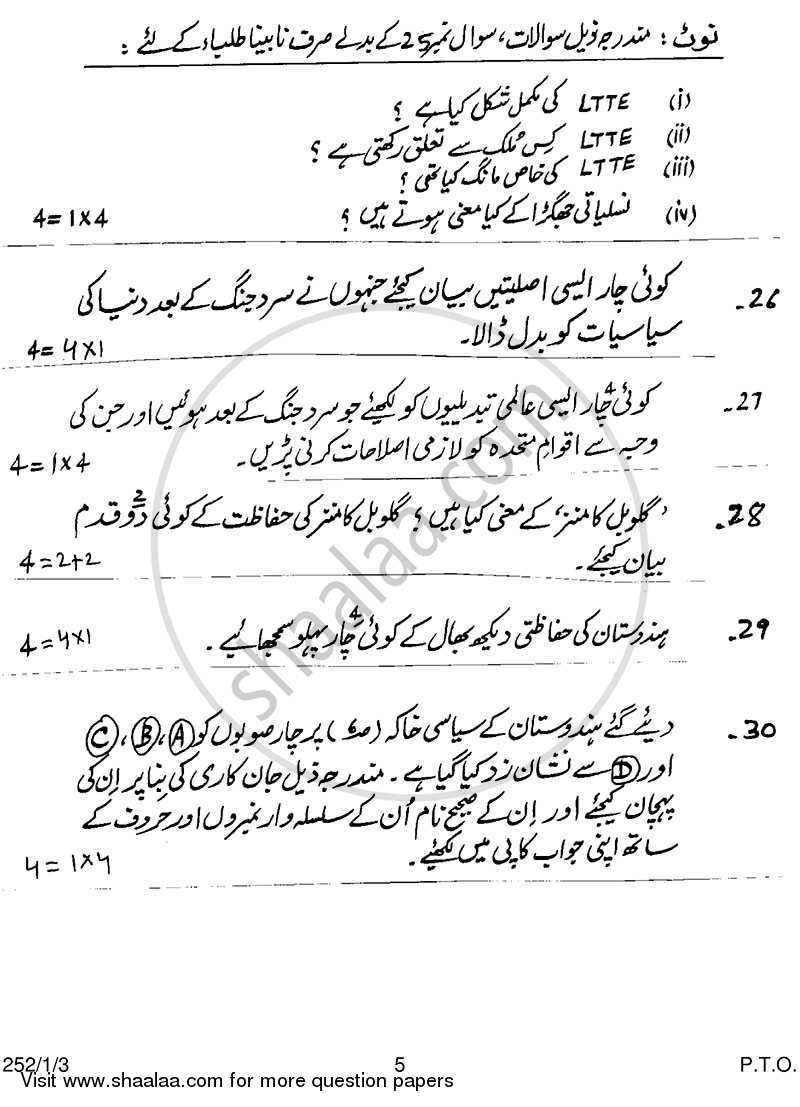 نوٹ : مندرجہ ذیل سوالات، سوال نمبر 25 کے بدلے صرف نابینا طلباء کے لئے :
(i) LTTE کی مکمل شکل کیا ہے ؟
(ii) LTTE کِس مُلک سے تعلق رکھتی ہے ؟
(iii) LTTE کی خاص مانگ کیا تھی ؟
(iv) نسلیاتی جھگڑا کے کیا معنی ہوتے ہیں ؟ 4=1X4
26۔ کوئی چار ایسی اصلیتیں بیان کیجئے جنہوں نے سرد جنگ کے بعد دنیا کی
سیاسیات کو بدل ڈالا۔ 4=4X1
27۔ کوئی چار 4 ایسی عالمی تبدیلیوں کو لکھیئے جو سرد جنگ کے بعد ہوئیں اور جن کی
وجہ سے اقوامِ متحدہ کو لازمی اصلاحات کرنی پڑیں۔ 4=1X4
28۔ ’گلوبل کامنز‘ کے معنی کیا ہیں ؟ گلوبل کامنز کی حفاظت کے کوئی دو 2 قدم
بیان کیجئے۔ 4=2+2
29۔ ہندوستان کی حفاظتی دیکھ بھال کے کوئی چار 4 پہلو سمجھائیے ۔ 4=4X1
30۔ دیئے گئے ہندوستان کے سیاسی خاکہ ) پر چار صوبوں کو (A)، (B)، (C)
اور (D) سے نشان زد کیا گیا ہے ۔ مندرجہ ذیل جان کاری کی بِنا پر اِن کی
پہچان کیجئے اور اِن کے صحیح نام اُن کے سلسلہ وار نمبروں اور حروف کے
ساتھ اپنی جواب کاپی میں لکھیئے۔ 4=1X4
252/1/3 5 P.T.O.
Visit www.shaalaa.com for more question papers
shaalaa.com